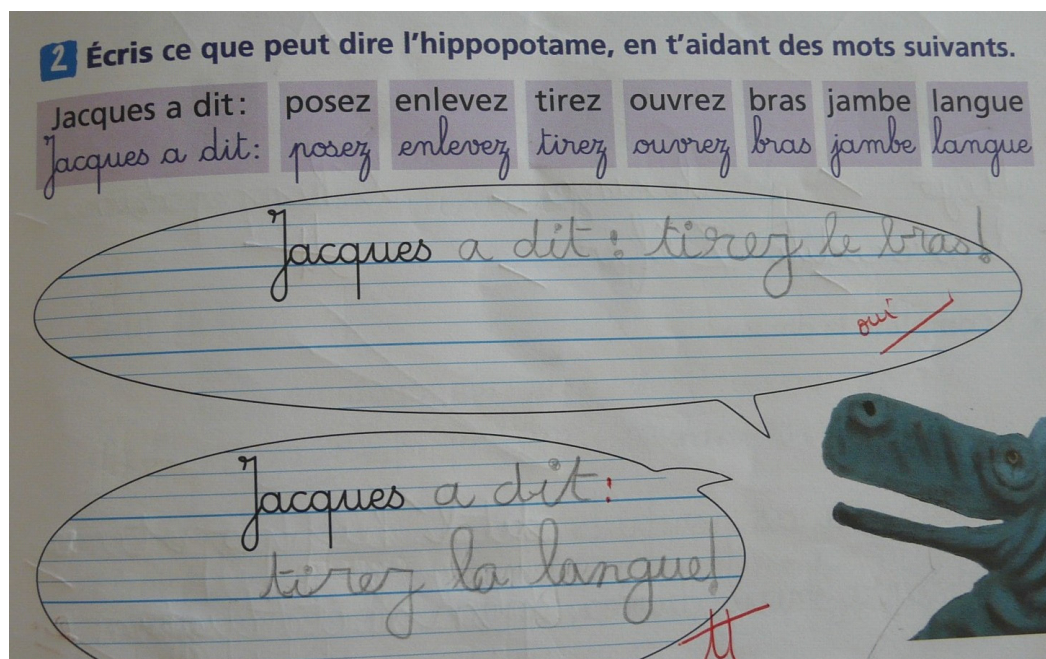 2 Écris ce que peut dire l'hippopotame, en t'aidant des mots suivants.
Jacques a dit : posez enlevez tirez ouvrez bras jambe langue
Jacques a dit : posez enlevez tirez ouvrez bras jambe langue
Jacques a dit : tirez le bras!
oui
Jacques a dit :
tirez la langue!
tt